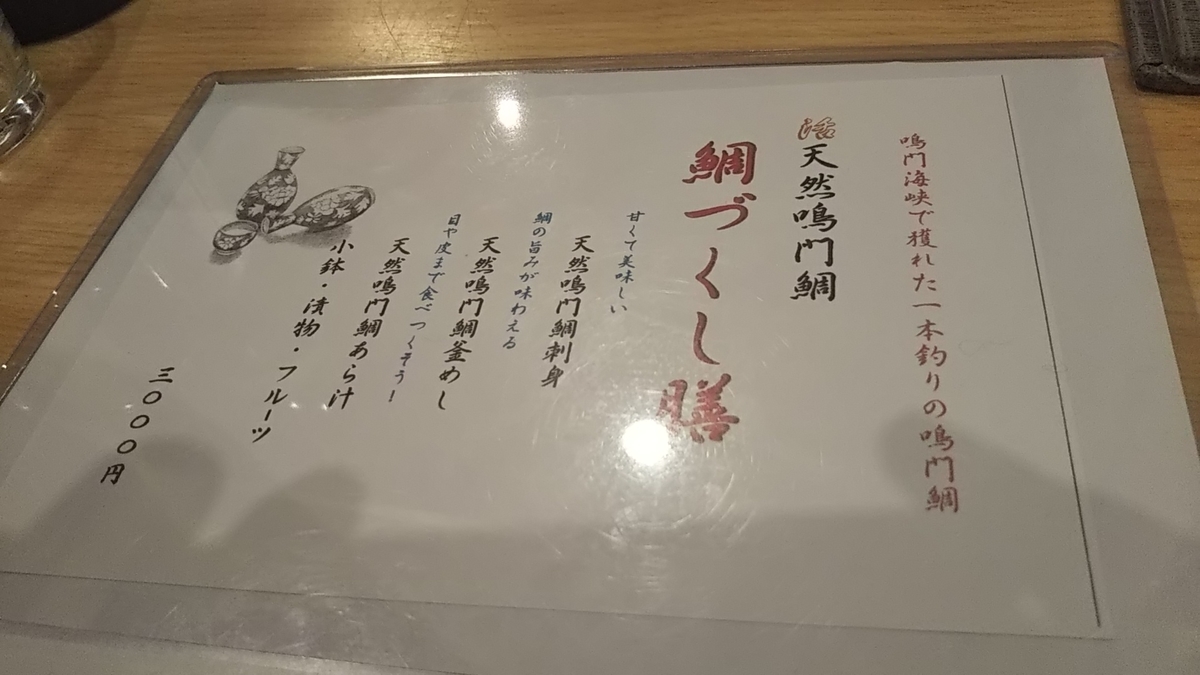 鳴門海峡で獲れた一本釣りの鳴門鯛
活天然鳴門鯛
鯛づくし膳
甘くて美味しい
天然鳴門鯛刺身
鯛の旨みが味わえる
天然鳴門鯛釜めし
目や皮まで食べつくそう！
天然鳴門鯛あら汁
小鉢・漬物・フルーツ
三〇〇〇円